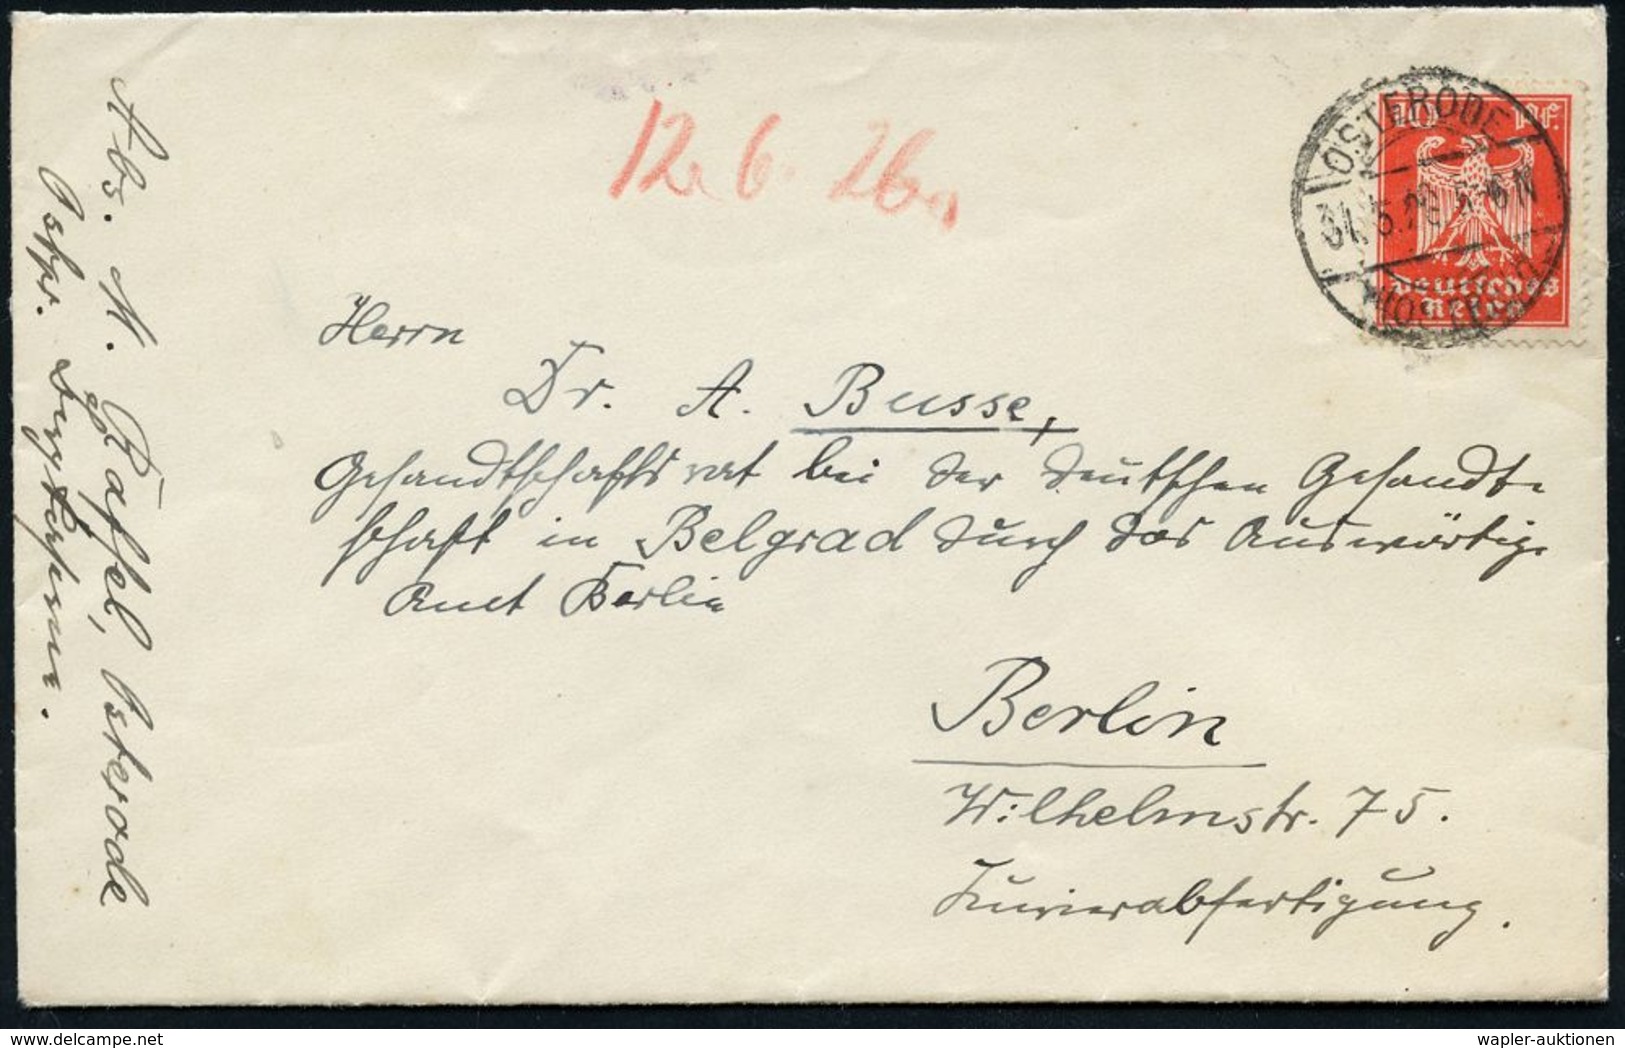 12. 6. 26.
OSTERODE
31.5.26. 5-6 N
(OSTPR.)
10 Pf.
Deutsches
Reich
Herrn
Dr. A. Busse,
Gesandtschaftsrat bei der deutschen Gesandt-
schaft in Belgrad durch das Auswärtige
Amt Berlin
Berlin
Wilhelmstr. 75.
Kurierabfertigung.
Abs. M. Räffel, Osterode
Ostpr.
wapler-auktionen
www.delcampe.net